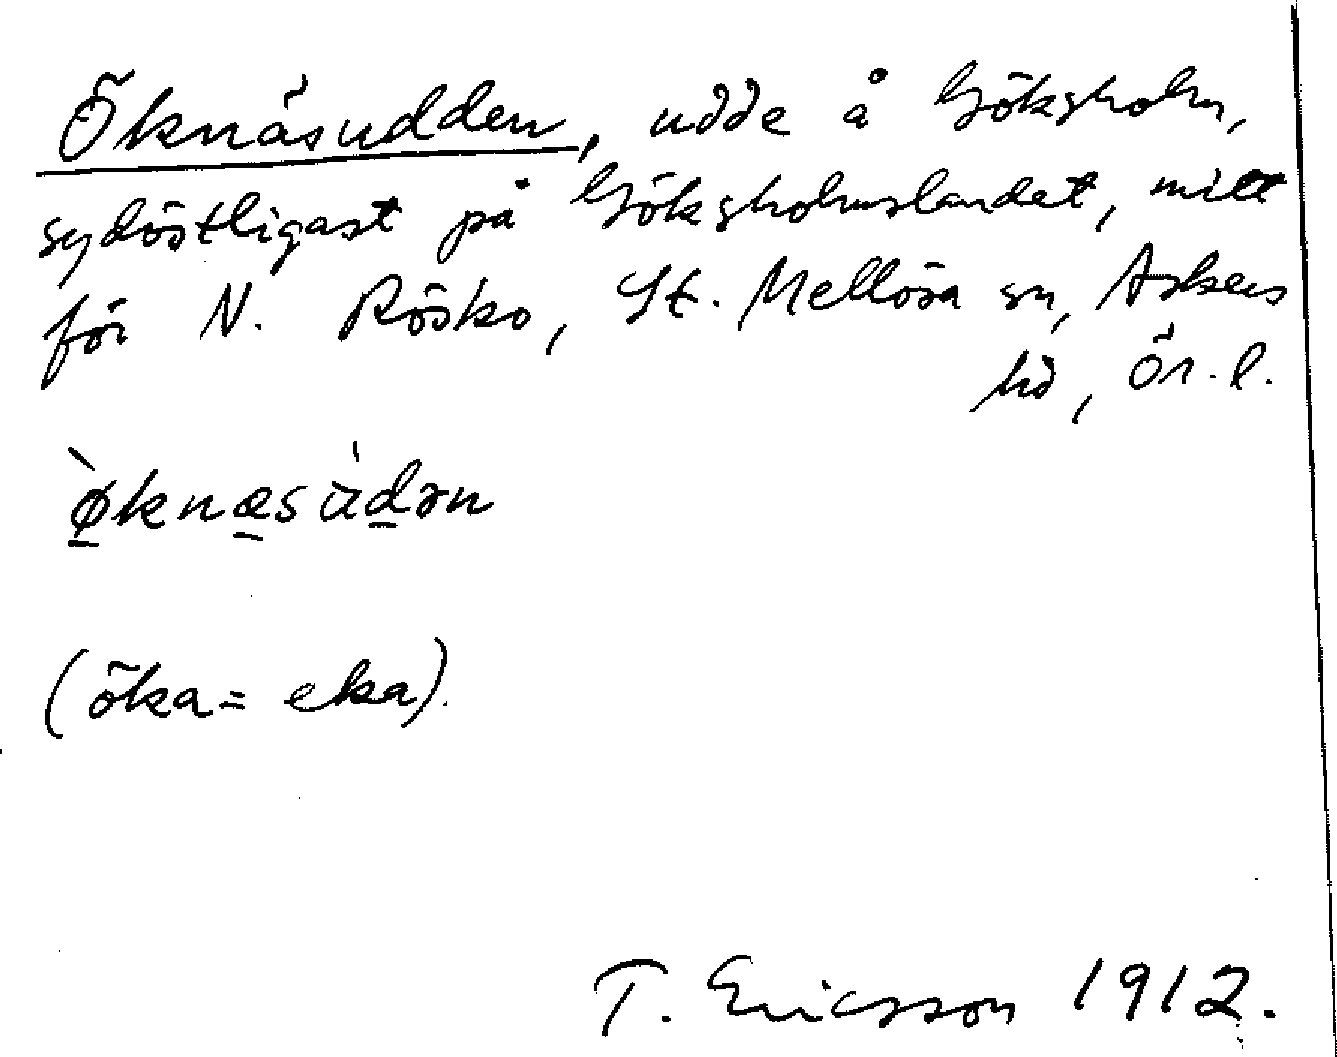 Öknäsudden, udde å Göksholm,
sydöstligast på Göksholmslandet, mitt
för N. Rösko, St. Mellösa sn, Askers
hd, Ör. l.
ø̀knæsùdən
(öka = eka).
T. Ericsson 1912.